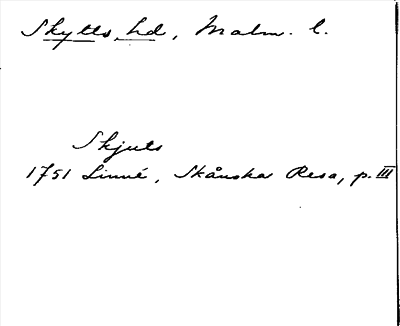 Skytts hd, Malm. l.
Skjuts
1751 Linné, Skånska Resa, p. III